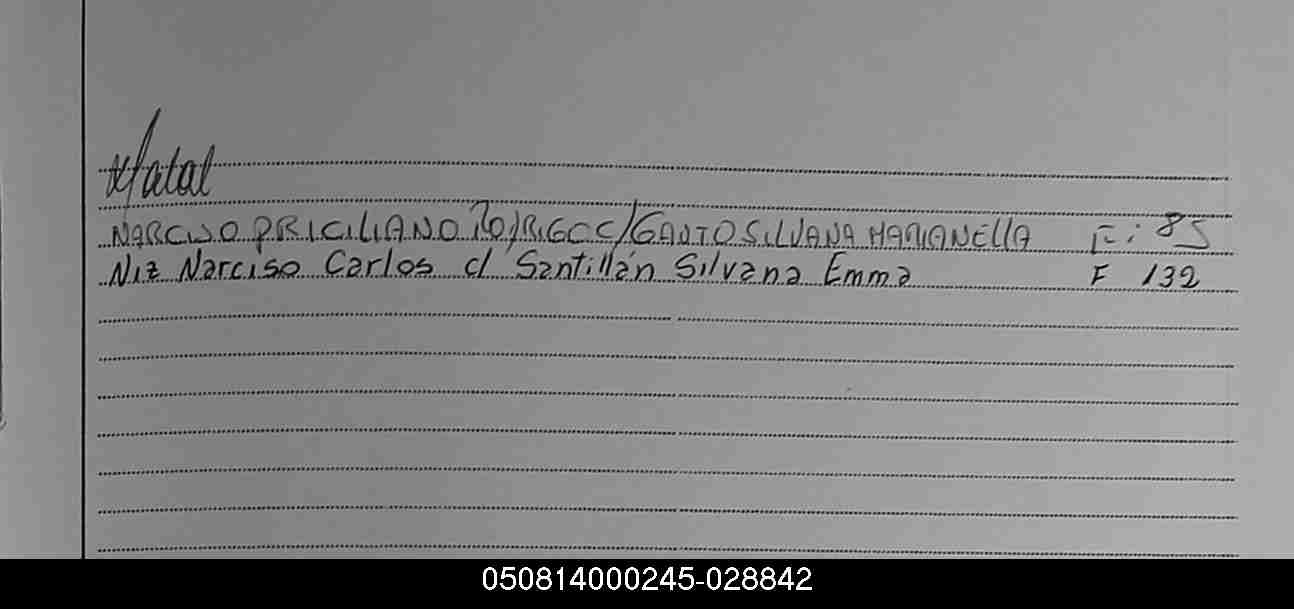 NARCISO PRICILIANO RODRIGO C/ GAUTO SILVANA MARIANELLA F: 85
Niz Narciso Carlos c/ Santillán Silvana Emma F 132
050814000245-028842